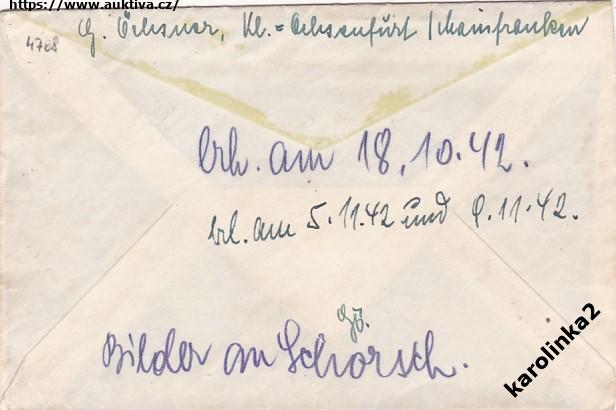 https://www.auktiva.cz/
G. Öchsner, Kl.=Ochsenfurt / Mainfranken
4708
Erh. am 18.10.42.
bel. am 5.11.42 und 9.11.42.
Bilder an Schorsch.
karolinka2